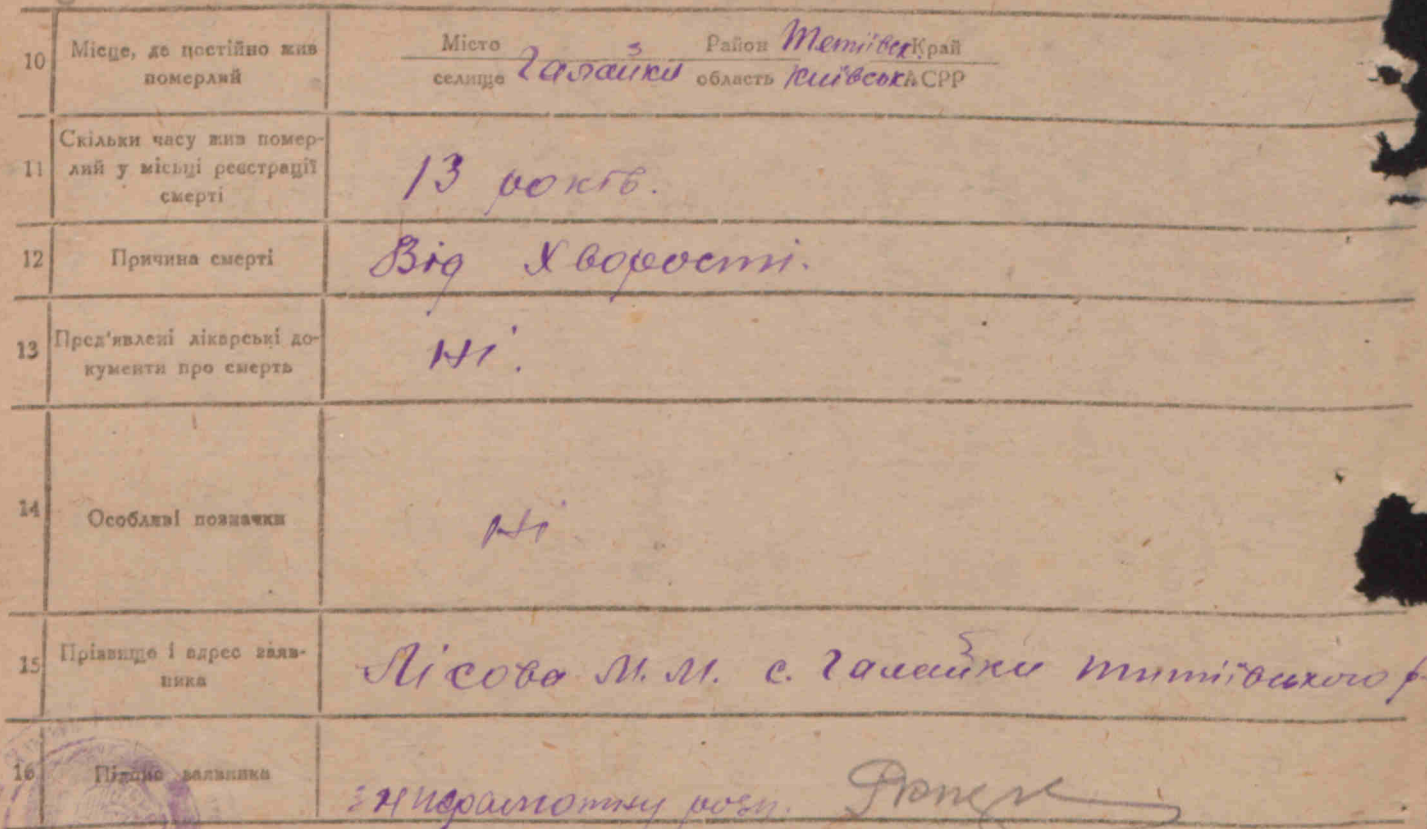 10 Місце, де постійно жив померлий
Місто Район Тетіївськ Край
селище Галайки область Київськ АСРР
11 Скільки часу жив помер-
лий у місці реєстрації
смерті
13 років.
12 Причина смерті Від Хворості.
13 Пред'явлені лікарські до-
кументи про смерть
Ні.
14 Особливі позначки Ні
15 Прізвище і адрес заяв-
ника
Лісова М. М. с. Галайки титіївського р-
16 Підпис заявника